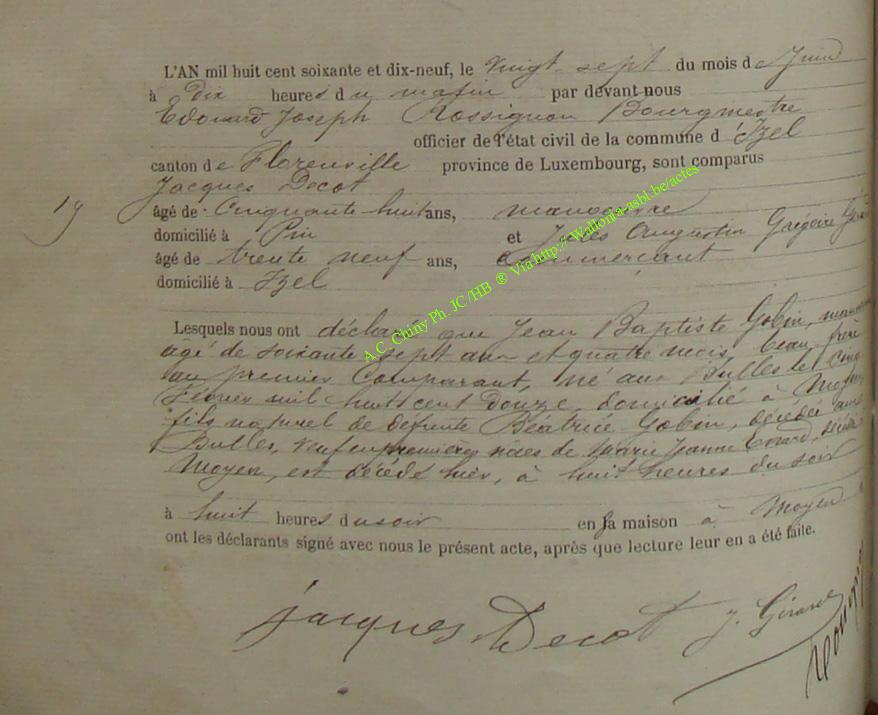 L'AN mil huit cent soixante et dix-neuf, le vingt sept du mois de Juin
à Dix heures du matin par devant nous
Edouard Joseph Rossignon Bourgmestre
officier de l'état civil de la commune d'Izel
canton de Florenville province de Luxembourg, sont comparus
Jacques Decot
19
âgé de Cinquante huit ans, manoeuvre
domicilié à Pin et Jules Augustin Grégoire
âgé de trente neuf ans, Commerçant
domicilié à Izel
A.C. Chiny Ph. JC/HB ® Via http://Wallonia-asbl.be/actes
Lesquels nous ont déclaré que Jean Baptiste Gobin,
âgé de soixante sept ans et quatre mois, beau frère
au premier Comparant, né aux Bulles le cinq
Février mil huit cent Douze, domicilié à Moyen
fils naturel de défunte Béatrice Gobin, décédée aux
Bulles, veuf en premières noces de Marie Jeanne Evrard,
Moyen, est décédé hier, à huit heures du soir
à huit heures du soir en sa maison à Moyen
ont les déclarants signé avec nous le présent acte, après que lecture leur en a été faite.
jacques Decot J. Girard